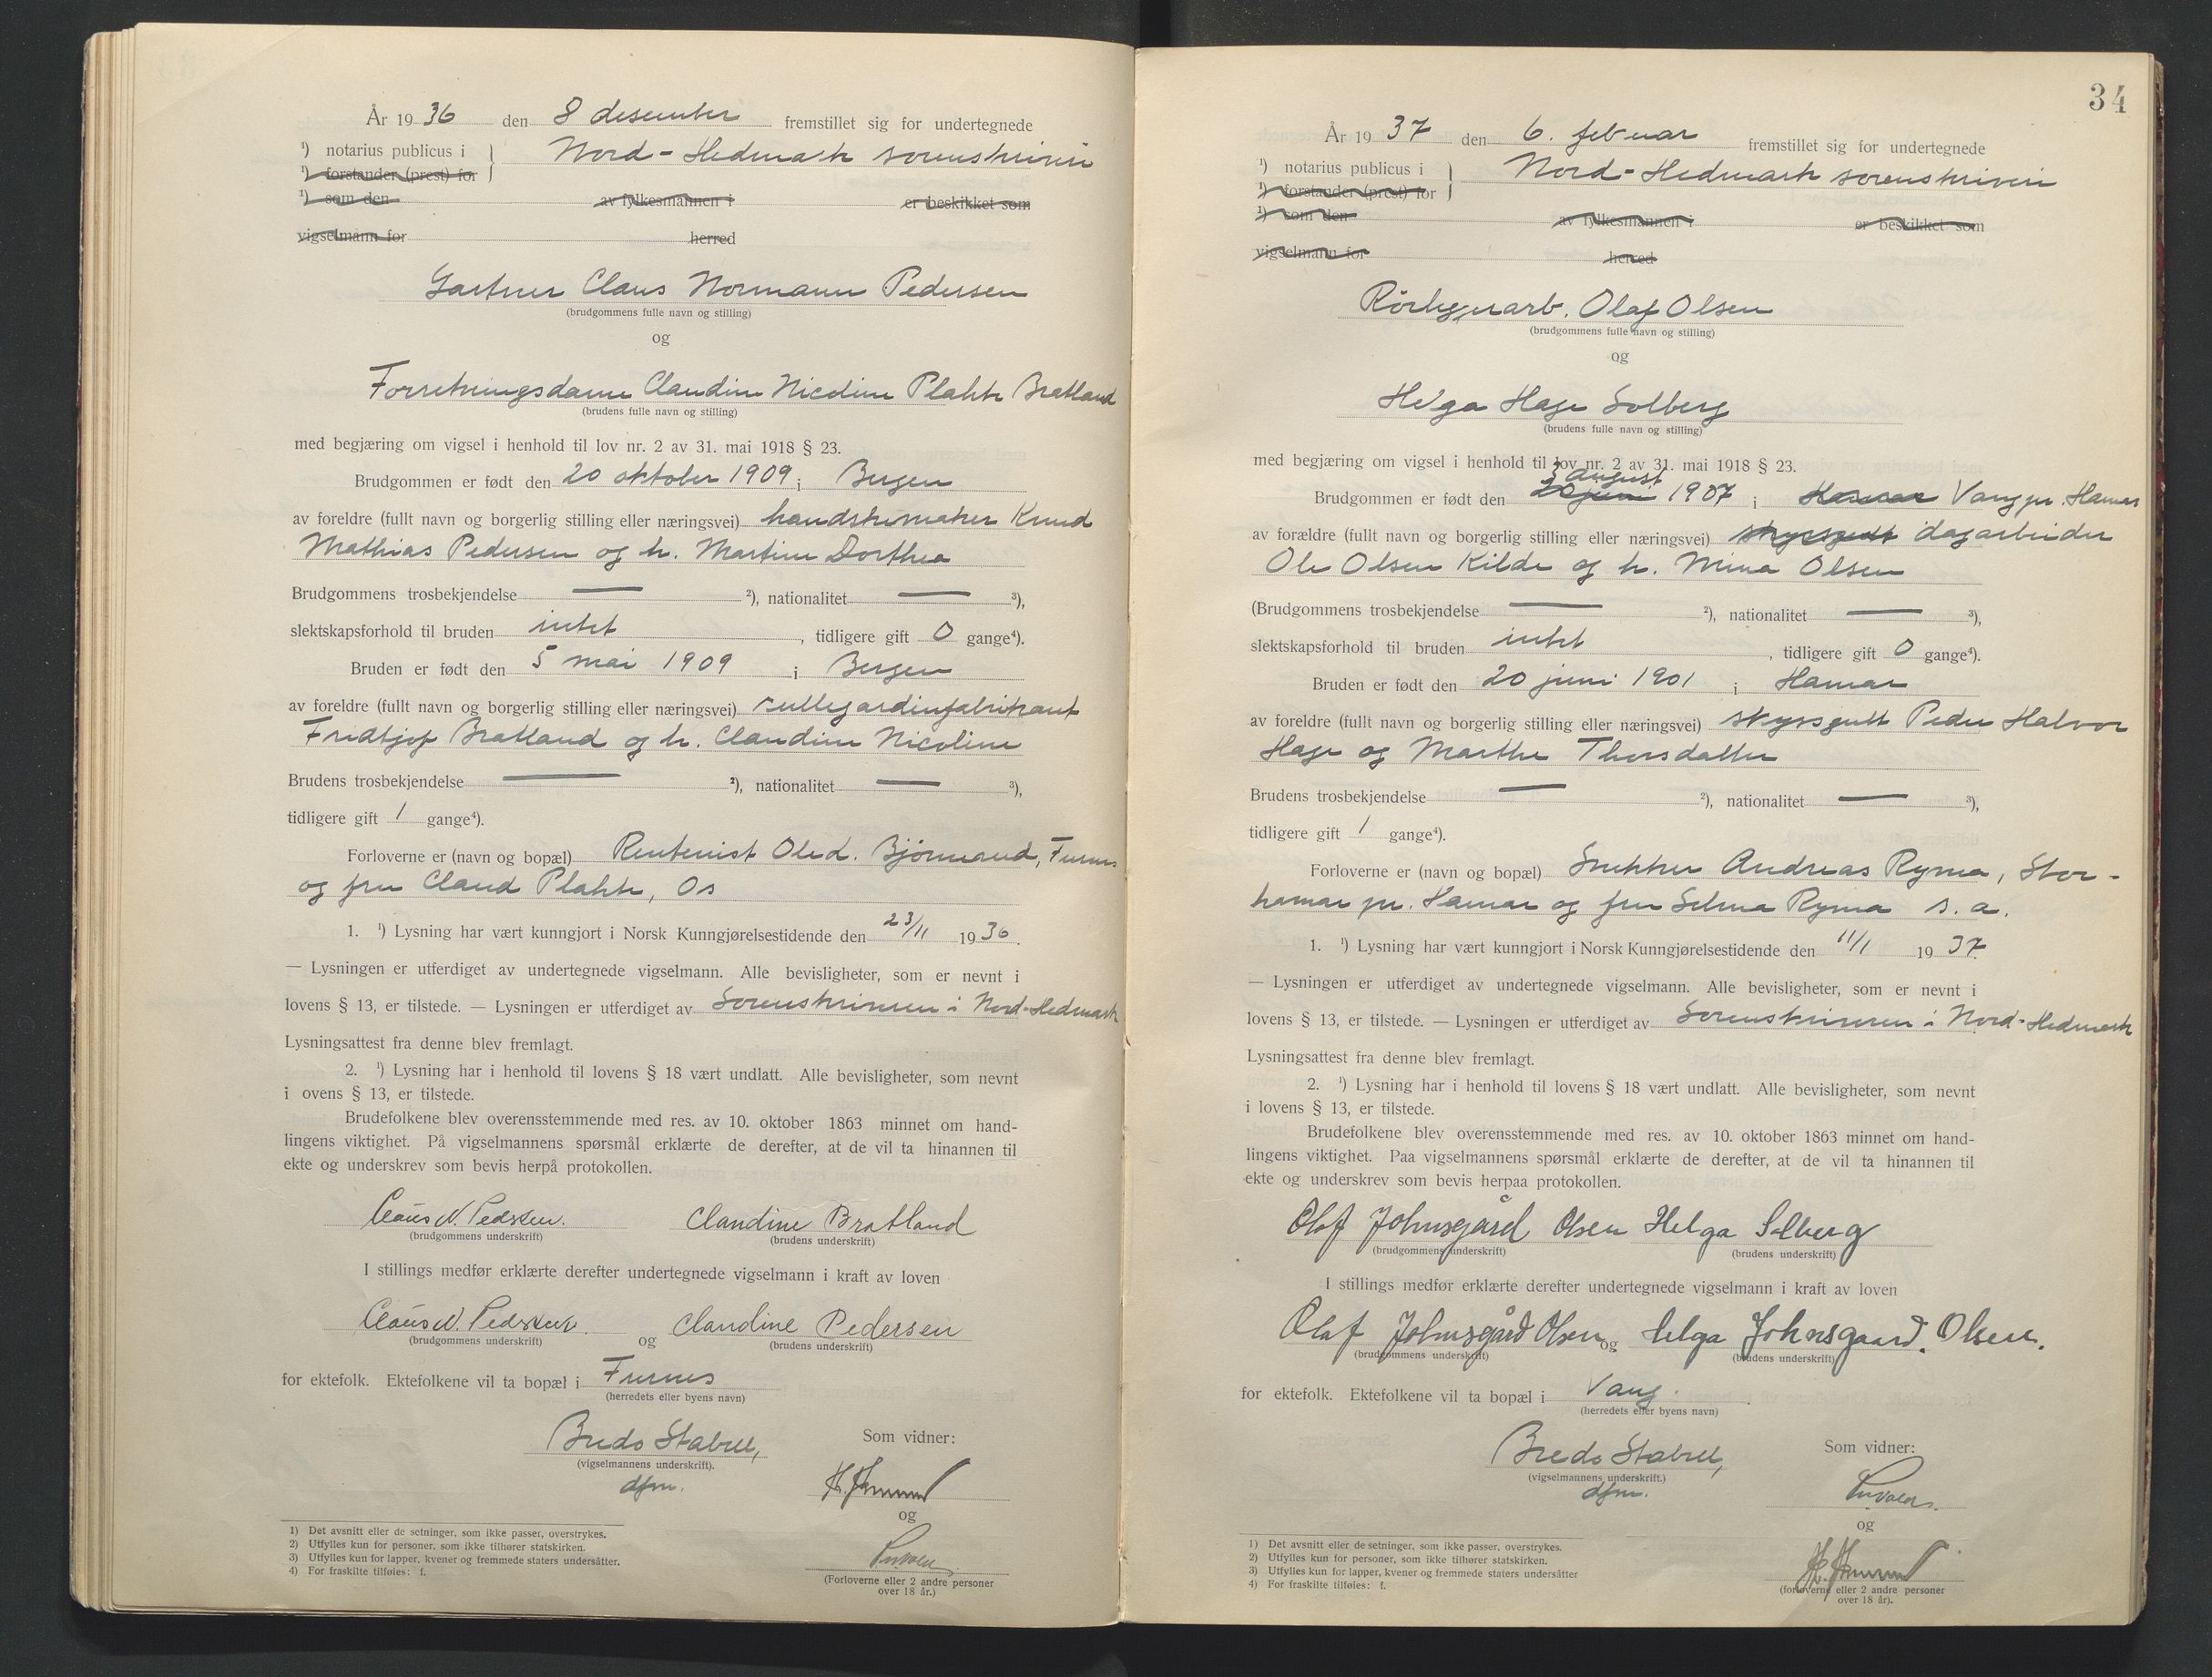 År 1936 den 8 desember fremstillet sig for undertegnede
¹) notarius publicus i } Nord-Hedmark sorenskriveri
¹) forstander (prest) for
¹) som den av fylkesmannen i er beskikket som
vigselmann for herred
Gartner Claus Normann Pedersen
(brudgommens fulle navn og stilling)
og
Forretningsdame Claudine Nicoline Plahte Bratland
(brudens fulle navn og stilling)
med begjæring om vigsel i henhold til lov nr. 2 av 31. mai 1918 § 23.
Brudgommen er født den 20 oktober 1909 i Bergen
av foreldre (fullt navn og borgerlig stilling eller næringsvei) handskemaker Knud
Mathias Pedersen og h. Martine Dorthea
Brudgommens trosbekjendelse — ²), nationalitet — ³),
slektskapsforhold til bruden intet, tidligere gift 0 gange⁴).
Bruden er født den 5 mai 1909 i Bergen
av foreldre (fullt navn og borgerlig stilling eller næringsvei) rullegardinfabrikant
Fridtjof Bratland og h. Claudine Nicoline
Brudens trosbekjendelse — ²), nationalitet — ³),
tidligere gift 1 gange⁴).
Forloverne er (navn og bopæl) Rentenist Ole d. Bjørnerud, Furnes
og fru Claud Plahte, Os
1. ¹) Lysning har vært kunngjort i Norsk Kunngjørelsestidende den 23/11 1936.
— Lysningen er utferdiget av undertegnede vigselmann. Alle bevisligheter, som er nevnt i
lovens § 13, er tilstede. — Lysningen er utferdiget av Sorenskriveren i Nord-Hedmark
Lysningsattest fra denne blev fremlagt.
2. ¹) Lysning har i henhold til lovens § 18 vært undlatt. Alle bevisligheter, som nevnt
i ovens § 13, er tilstede.
Brudefolkene blev overensstemmende med res. av 10. oktober 1863 minnet om hand-
lingens viktighet. På vigselmannens spørsmål erklærte de derefter, at de vil ta hinannen til
ekte og underskrev som bevis herpå protokollen.
Claus N. Pedersen. Claudine Bratland
(brudgommens underskrift) (brudens underskrift)
I stillings medfør erklærte derefter undertegnede vigselmann i kraft av loven
Claus N. Pedersen. og Claudine Pedersen
(brudgommens underskrift) (brudens underskrift)
for ektefolk. Ektefolkene vil ta bopæl i Furnes
(herredets eller byens navn)
Bredo Stabell, Som vidner:
(vigselmannens underskrift).
dfm.
og
(Forloverne eller 2 andre personer
over 18 år.)
1) Det avsnitt eller de setninger, som ikke passer, overstrykes.
2) Utfylles kun for personer, som ikke tilhører statskirken.
3) Utfylles kun for lapper, kvener og fremmede staters undersåtter.
4) For fraskilte tilføies: f.
34
År 1937 den 6. februar fremstillet sig for undertegnede
¹) notarius publicus i } Nord-Hedmark sorenskriveri
¹) forstander (prest) for
¹) som den av fylkesmannen i er beskikket som
vigselmann for herred
Rörleggerarb. Olaf Olsen
(brudgommens fulle navn og stilling)
og
Helga Hage Solberg
(brudens fulle navn og stilling)
med begjæring om vigsel i henhold til lov nr. 2 av 31. mai 1918 § 23.
3 august
Brudgommen er født den 20 juni 1907 i Hamar Vang pr. Hamar
av forældre (fullt navn og borgerlig stilling eller næringsvei) skyssgutt dagarbeider
Ole Olsen Kilde og h. Mina Olsen
(Brudgommens trosbekjendelse — ²), nationalitet — ³),
slektskapsforhold til bruden intet, tidligere gift 0 gange⁴).
Bruden er født den 20 juni 1901 i Hamar
av foreldre (fullt navn og borgerlig stilling eller næringsvei) skyssgutt Peder Halvor
Hage og Marthe Thorsdatter
Brudens trosbekjendelse — ²), nationalitet — ³),
tidligere gift 1 gange⁴).
Forloverne er (navn og bopæl) Snekker Andreas Ryma, Stor-
hamar pr. Hamar og fru Selma Ryma s. a.
1. ¹) Lysning har vært kunngjort i Norsk Kunngjørelsestidende den 11/1 1937
— Lysningen er utferdiget av undertegnede vigselmann. Alle bevisligheter, som er nevnt i
lovens § 13, er tilstede. — Lysningen er utferdiget av Sorenskriveren i Nord-Hedmark
Lysningsattest fra denne blev fremlagt.
2. ¹) Lysning har i henhold til lovens § 18 vært undlatt. Alle bevisligheter, som nevnt
i lovens § 13, er tilstede.
Brudefolkene blev overensstemmende med res. av 10. oktober 1863 minnet om hand-
lingens viktighet. Paa vigselmannens spørsmål erklærte de derefter, at de vil ta hinannen til
ekte og underskrev som bevis herpaa protokollen.
Olaf Johnsgård Olsen Helga Solberg
(brudgommens underskrift) (brudens underskrift)
I stillings medfør erklærte derefter undertegnede vigselmann i kraft av loven
Olaf Johnsgård Olsen og Helga Johnsgaard. Olsen.
(brudgommens underskrift) (brudens underskrift)
for ektefolk. Ektefolkene vil ta bopæl i Vang.
(herredets eller byens navn)
Bredo Stabell, Som vidner:
(vigselmannens underskrift.)
dfm.
og
(forloverne eller 2 andre personer
over 18 år).
1) Det avsnitt eller de setninger, som ikke passer, overstrykes.
2) Utfylles kun for personer, som ikke tilhører statskirken.
3) Utfylles kun for lapper, kvener og fremmede staters undersåtter
4) For fraskilte tilføies: f.